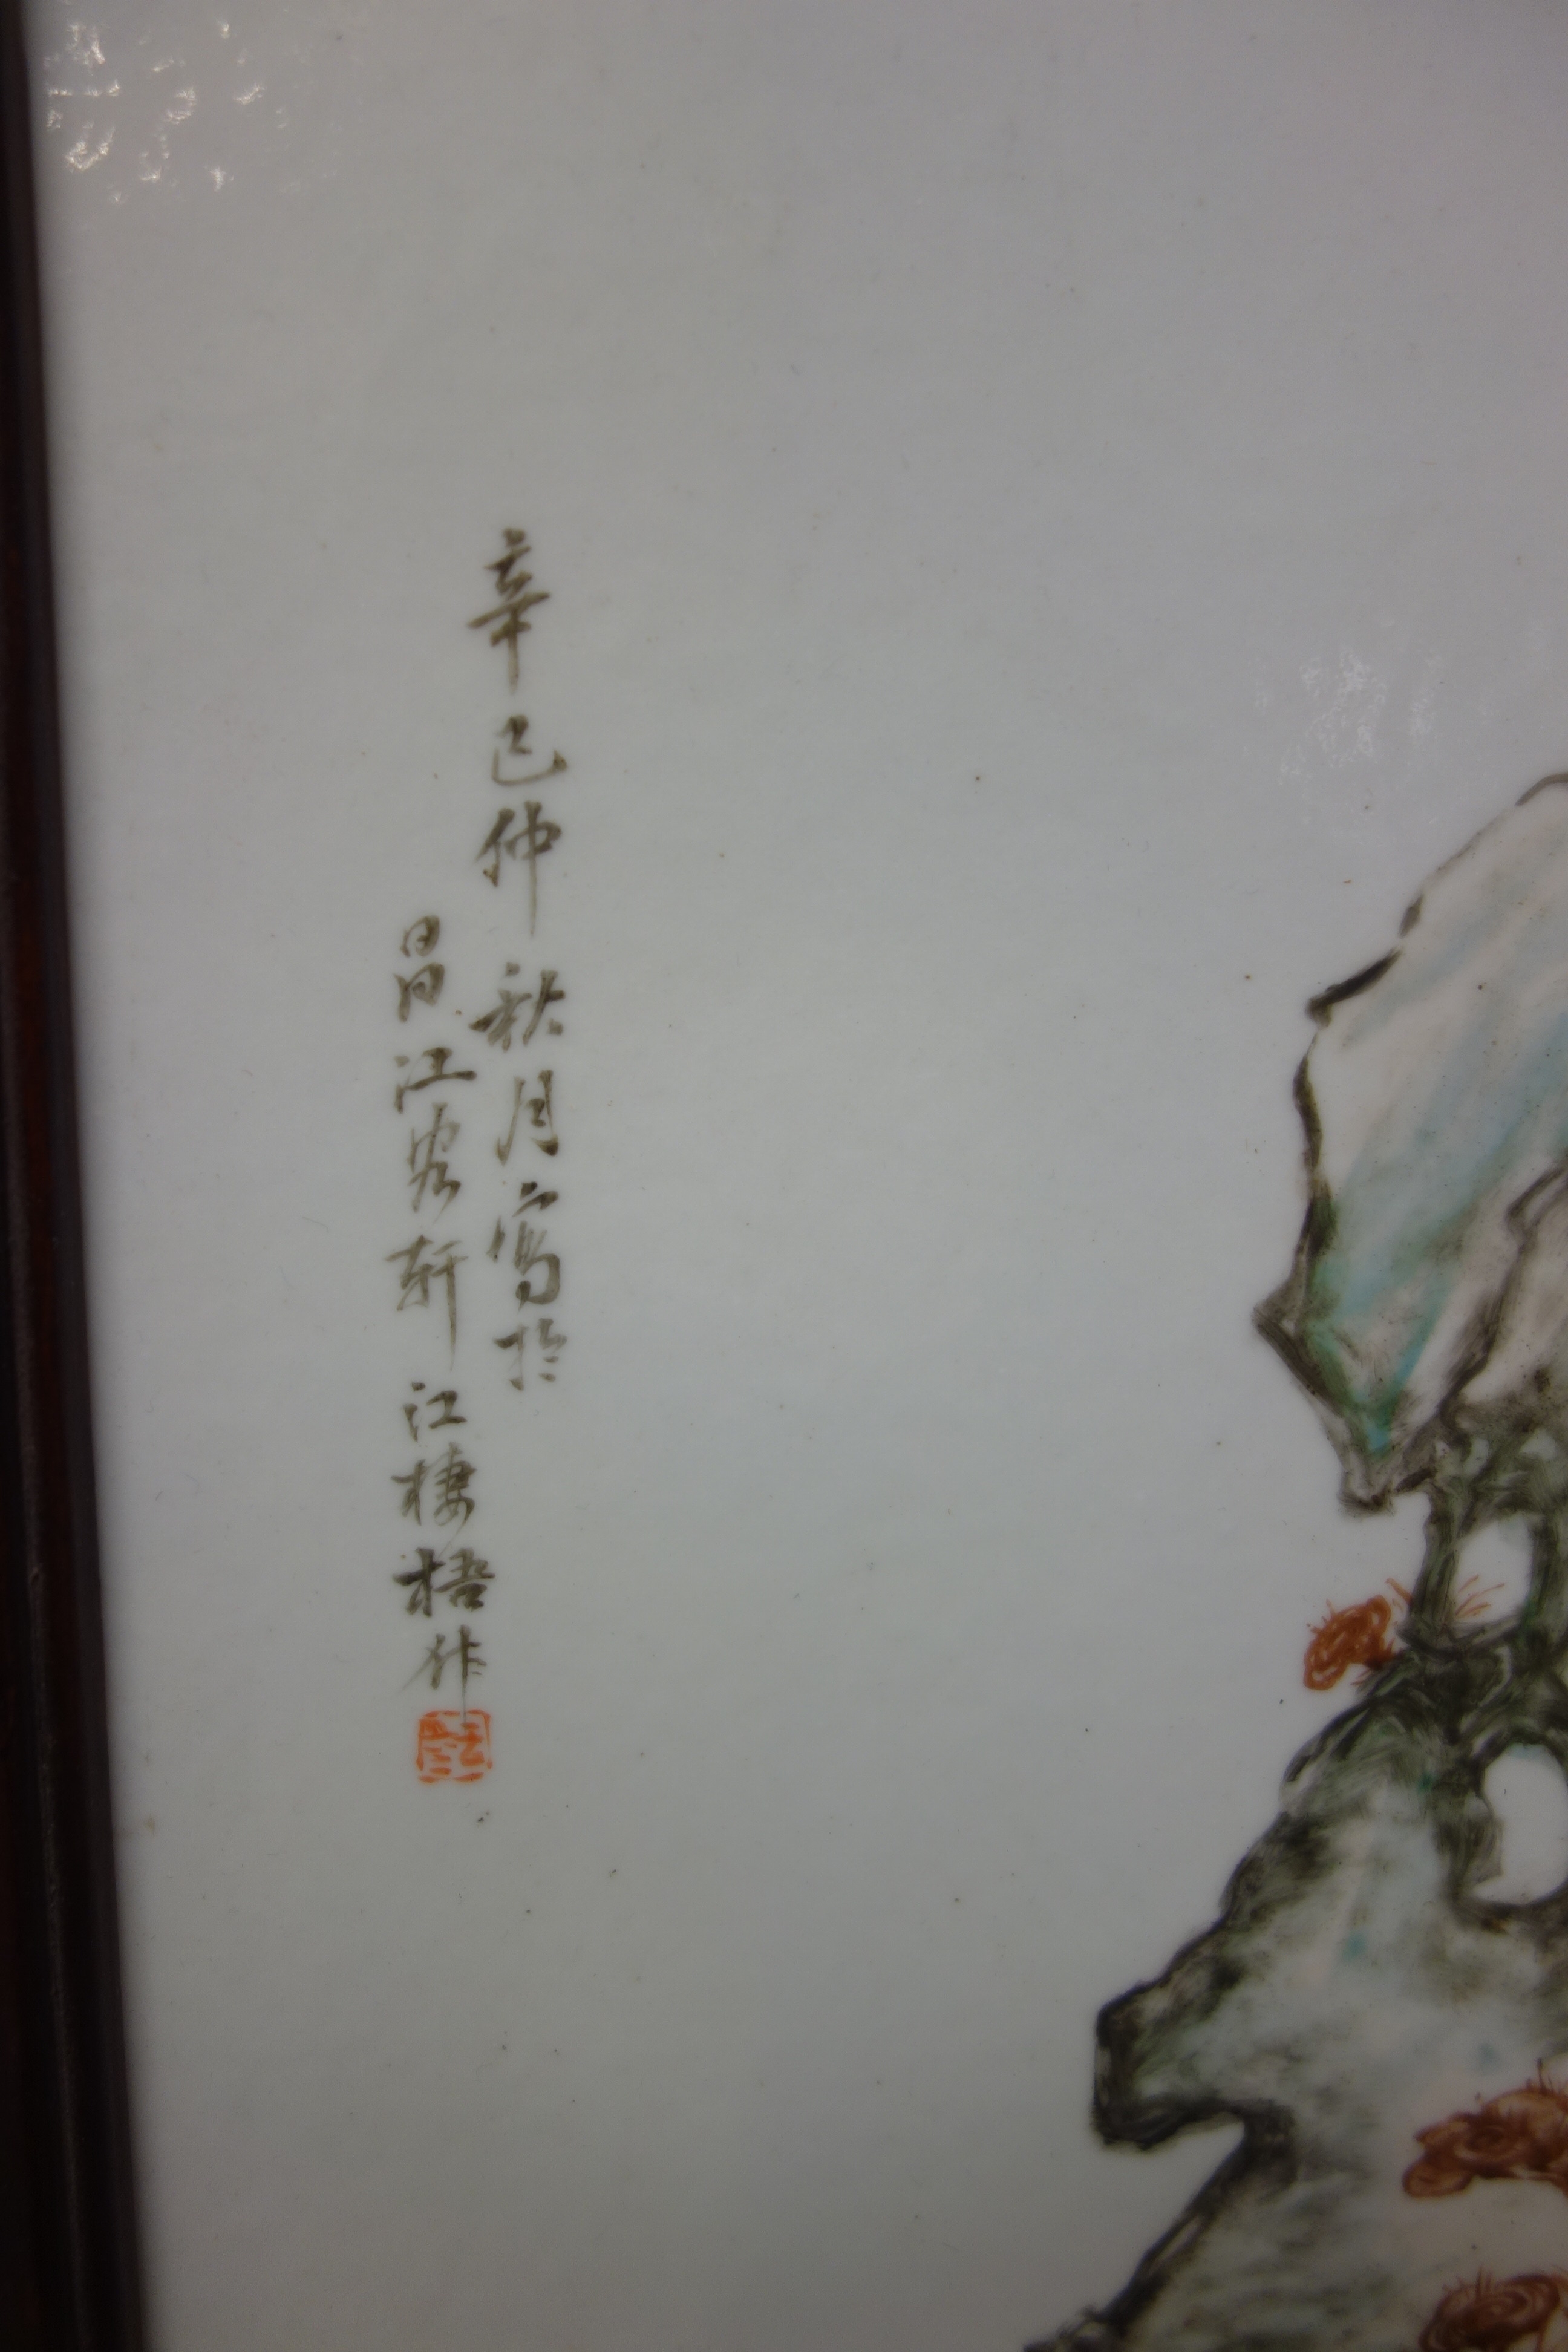 辛巳仲秋月寫於
昌江客軒江棲梧作